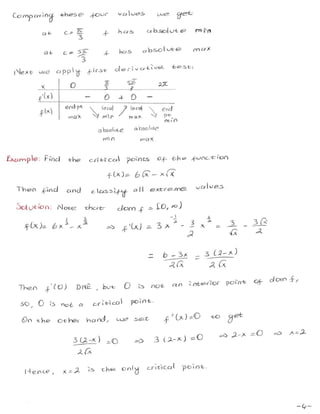 Comparing these four values we get
at c = π/3 f has absolute min
at c = 5π/3 f has absolute max
Next we apply first derivative test:
x 0 π/3 5π/3 2π
f'(x) - 0 + 0 -
f(x) endpt max ↘ local min ↗ local max ↘ end pt min
absolute min absolute max
Example: Find the critical points of the function
f(x) = 6√x - x√x
Then find and classify all extreme values.
Solution: Note that dom f = [0, ∞)
f(x) = 6x^{1/2} - x^{3/2} ⇒ f'(x) = 3x^{-1/2} - 3/2 x^{1/2} = 3/√x - 3√x/2
= (6-3x)/(2√x) = 3(2-x)/(2√x)
Then f'(0) DNE, but 0 is not an interior point of dom f,
so, 0 is not a critical point.
On the other hand, we set f'(x)=0 to get
3(2-x)/(2√x) = 0 ⇒ 3(2-x) = 0 ⇒ 2-x = 0 ⇒ x=2
Hence, x=2 is the only critical point.
-4-